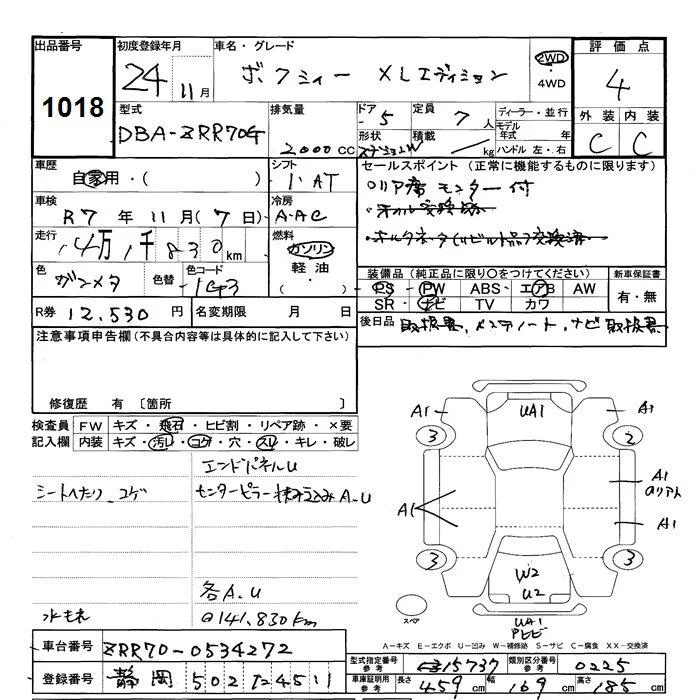 出品番号 初度登録年月 車名・グレード 評価点
1018 24 11月 ボクシィー XLエディション 2WD ・ 4WD 4
型式 排気量 ドア 5 定員 7人 ディーラー・並行 外装 内装
DBA-ZRR70G 2000cc 形状 積載 kg モデル年式 年 ハンドル 左・右 C C
車歴 シフト セールスポイント (正常に機能するものに限ります)
自家用・( ) 1・AT リア席モニター付
車検 冷房
R7年11月(7日) A-AC
走行 燃料
14万1千830km ガソリン 軽油 ・( )
色 色替 色コード 装備品 (純正品に限り○をつけてください) 新車保証書
ガンメタ 1G3 PS PW ABS・エアB AW 有・無
SR ナビ TV カワ
R券 12,530円 名変期限 月 日 後日品 取扱書、メンテノート、ナビ取扱書
注意事項申告欄 (不具合内容等は具体的に記入して下さい)
修復歴 有 〔箇所 〕
検査員記入欄 FW キズ・飛石・ヒビ割・リペア跡・×要
内装 キズ・汚レ・コゲ・穴・スレ・キレ・破レ
エンドパネルU
シートへたり コゲ センターピラー積み込みA.U
各A.U
水もれ 141,830km
A1 UA1 A1
3 2
A1 A1
A1
3 3
W2
U2
スペア UA1
A=キズ E=エクボ U=凹み W=補修跡 S=サビ C=腐食 XX=交換済
車台番号 ZRR70-0534272
型式指定番号 参考 15737 類別区分番号 参考 0225
登録番号 静岡 502 た 4511
車庫証明用 参考 長さ 459cm 幅 169cm 高さ 185cm